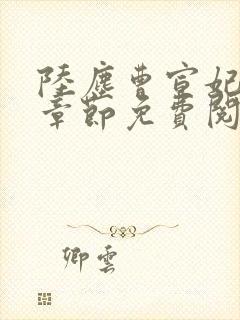 陸塵曹宣妃
章節免費閱
卿雲